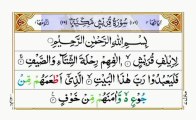 سُورَةُ قُرَيْشٍ مَكِّيَّةٌ
بِسْمِ اللهِ الرَّحْمٰنِ الرَّحِيْمِ
لِاِيْلٰفِ قُرَيْشٍ ۙ اٖلٰفِهِمْ رِحْلَةَ الشِّتَآءِ وَالصَّيْفِ ۚ
فَلْيَعْبُدُوْا رَبَّ هٰذَا الْبَيْتِ ۙ الَّذِيْٓ اَطْعَمَهُمْ مِّنْ
جُوْعٍ ۙ وَّاٰمَنَهُمْ مِّنْ خَوْفٍ